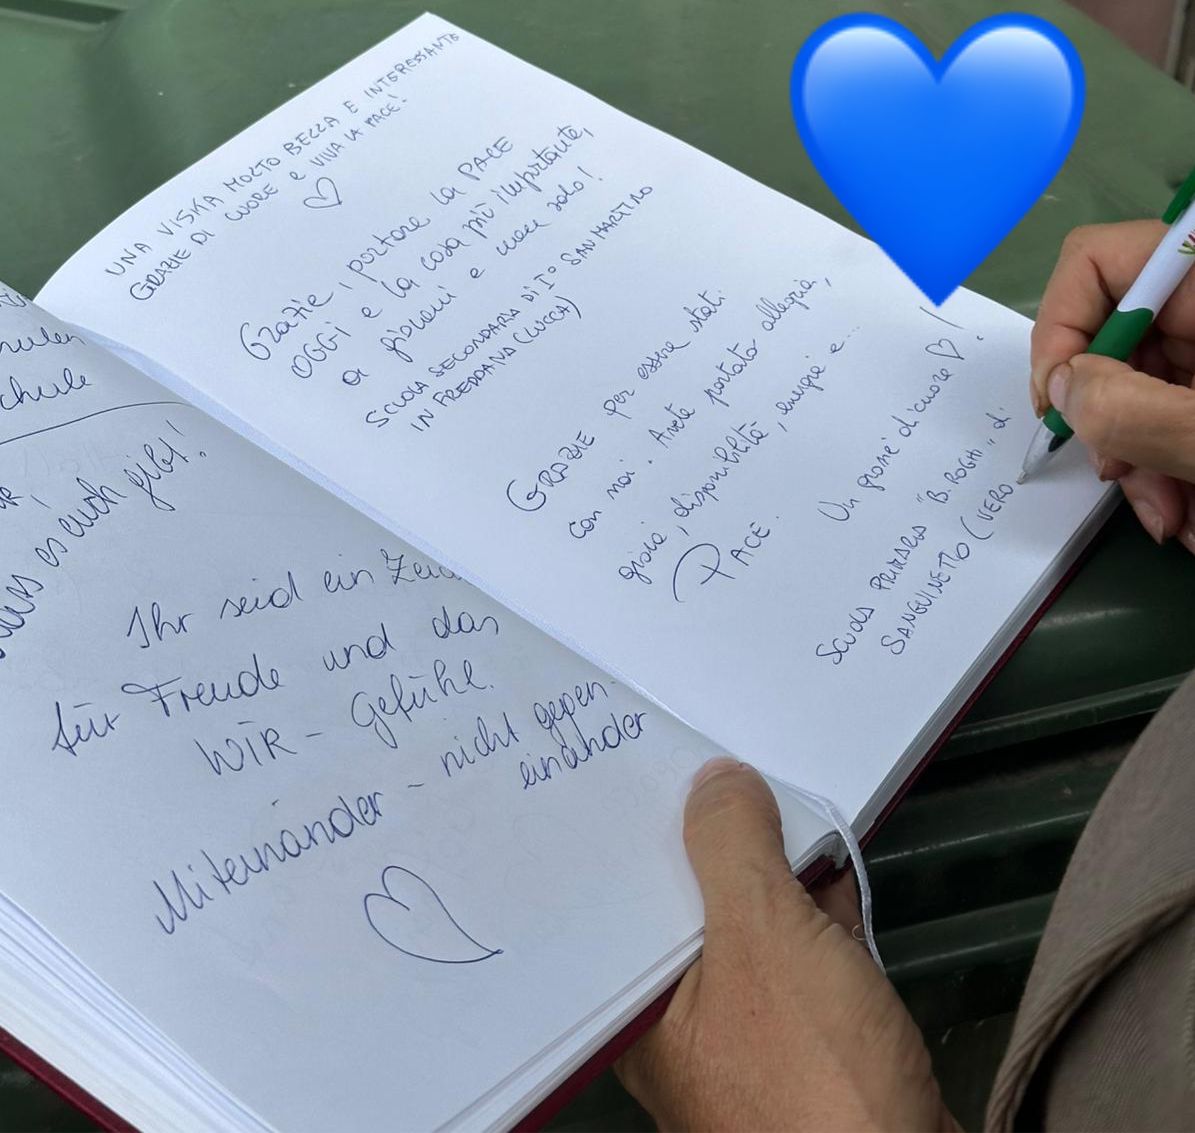 nulen
chule
was es euch gibt!
Ihr seid ein
für Freude und das
WIR - Gefühl.
Miteinander - nicht gegen
einander
UNA VISITA MOLTO BELLA E INTERESSANTE
GRAZIE DI CUORE e VIVA LA PACE!
Grazie, portare la PACE
OGGI e la cosa più importante,
ai giovani e non solo!
SCUOLA SECONDARIA DI I° SAN MARTINO
IN FREDDANA (LUCCA)
GRAZIE per essere stati
con noi. Avete portato allegria,
gioia, disponibilità, energia e...
PACE.
Un grosse di cuore !
SCUOLA PRIMARIA "B. ROGHI" di
SANGUINETTO (VERO